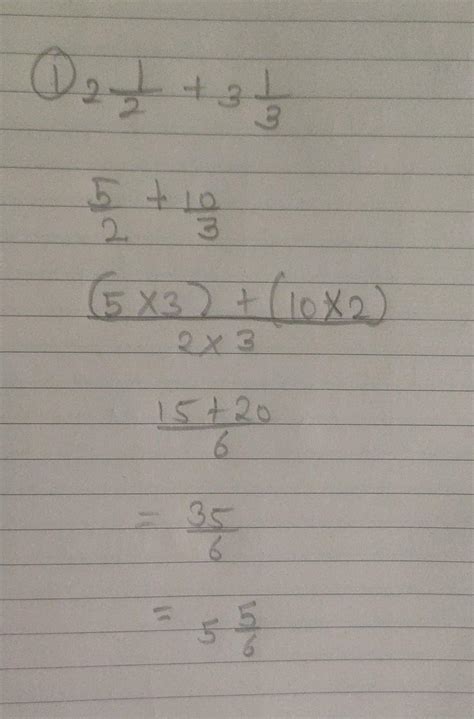 ① 2 1/2 + 3 1/3
5/2 + 10/3
(5 × 3) + (10 × 2) / 2 × 3
15 + 20 / 6
= 35/6
= 5 5/6